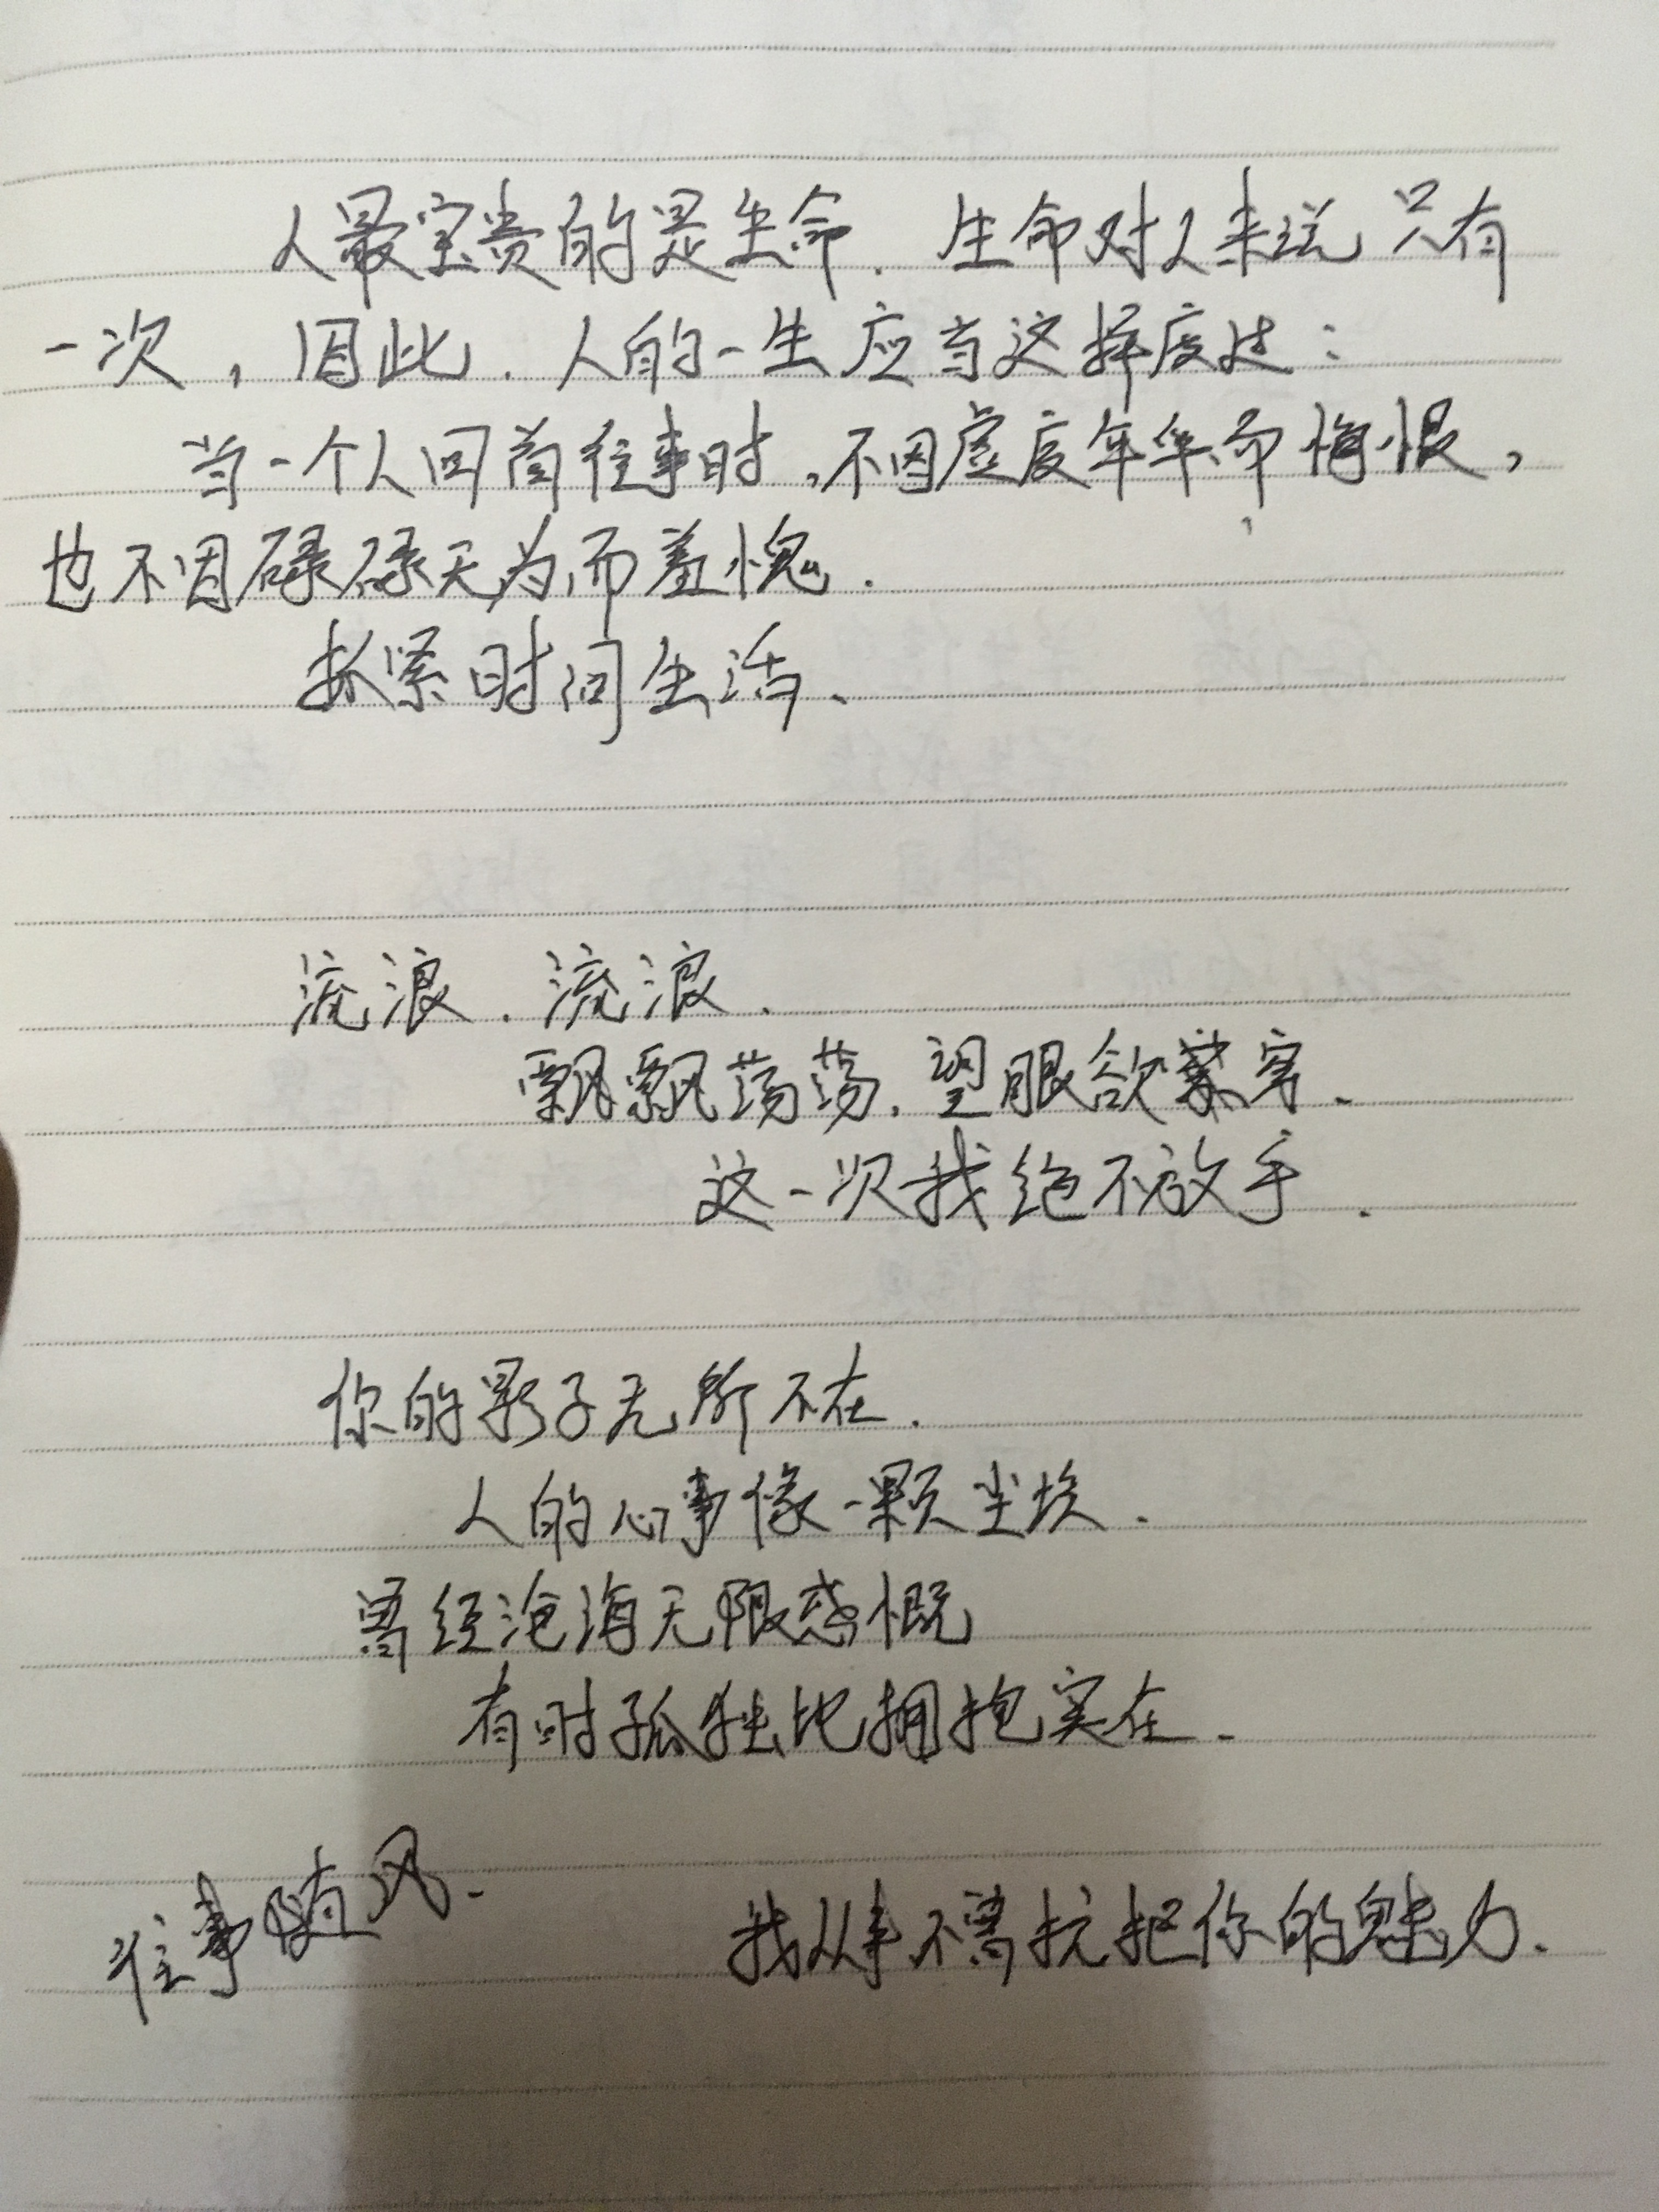 人最宝贵的是生命.生命对人来说只有
一次,因此.人的一生应当这样度过:
当一个人回首往事时,不因虚度年华而悔恨,
也不因碌碌无为而羞愧.
抓紧时间生活、
流浪.流浪.
飘飘荡荡.望眼欲穿、
这一次我绝不放手.
你的影子无所不在.
人的心事像一颗尘埃.
曾经沧海无限感慨
有时孤独比拥抱实在.
往事随风.
我从来不曾抗拒你的魅力.